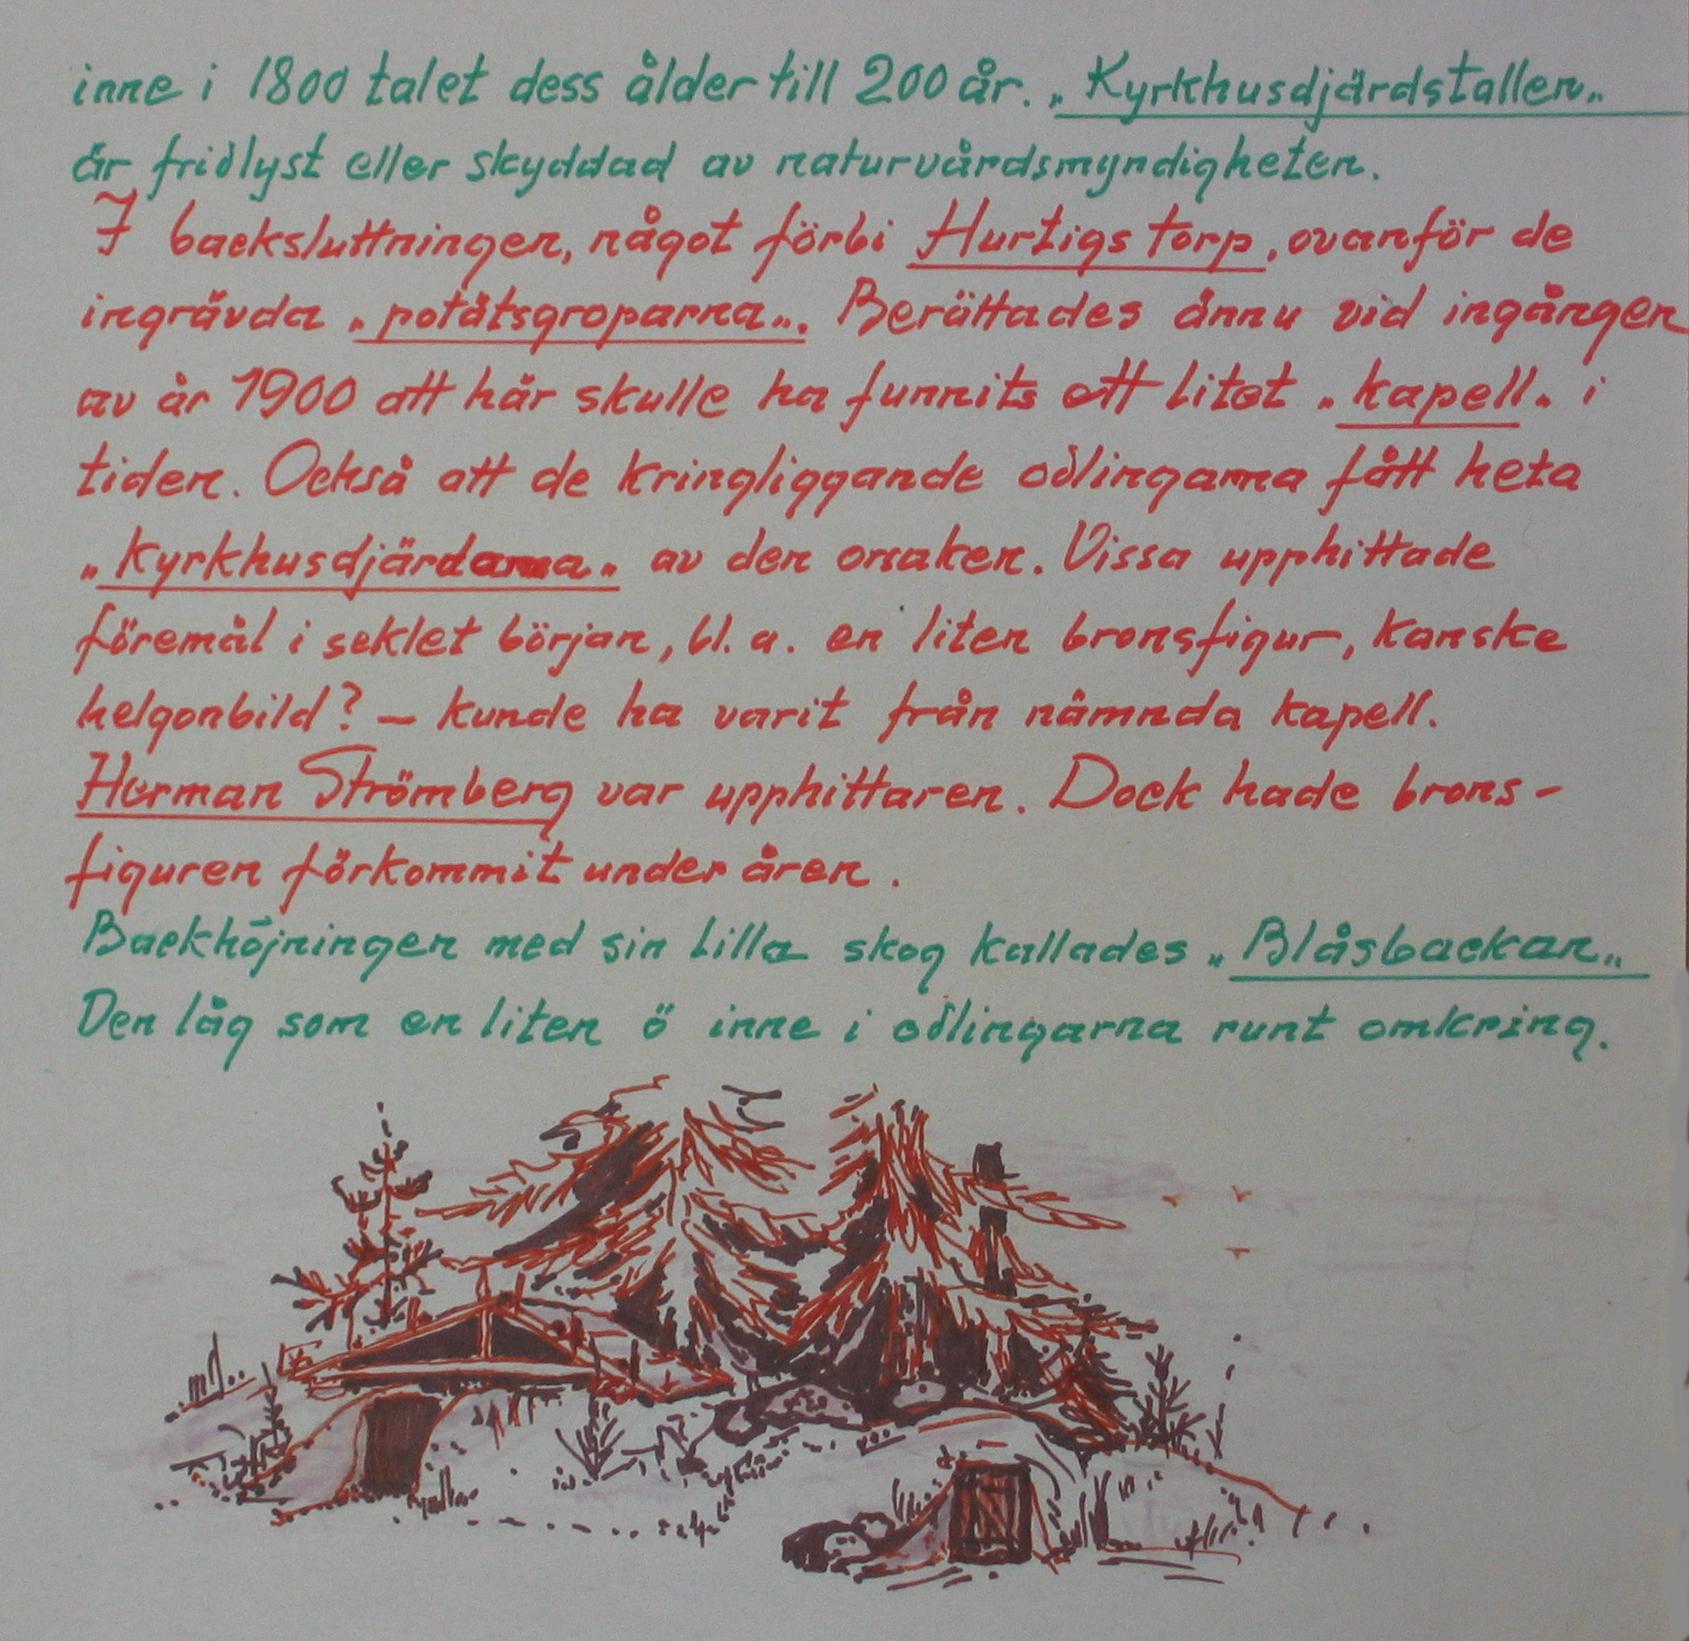 inne i 1800 talet dess ålder till 200 år. „Kyrkhusdjärdstallen„
är fridlyst eller skyddad av naturvårdsmyndigheten.
I backsluttningen, något förbi Hurtigs torp, ovanför de
ingrävda „potätsgroparna„. Berättades ännu vid ingången
av år 1900 att här skulle ha funnits ett litet „kapell„ i
tiden. Också att de kringliggande odlingarna fått heta
„Kyrkhusdjärdarna„ av den orsaken. Vissa upphittade
föremål i seklet början, bl. a. en liten bronsfigur, kanske
helgonbild? – kunde ha varit från nämnda kapell.
Herman Strömberg var upphittaren. Dock hade brons-
figuren förkommit under åren.
Backhöjningen med sin lilla skog kallades „Blåsbackan„
Den låg som en liten ö inne i odlingarna runt omkring.